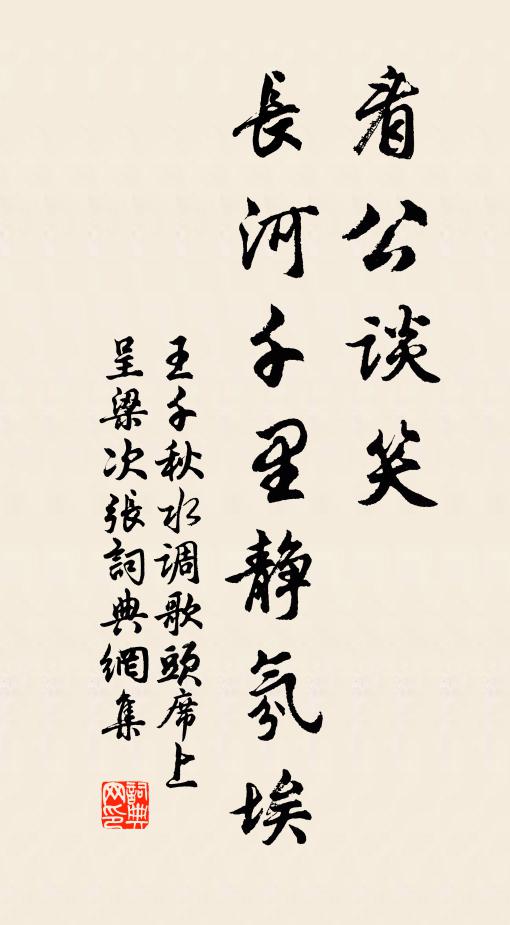 看公談笑
長河千里靜氛埃
王千秋水调歌頭席上
呈梁次張詞典網集
詞典
网印